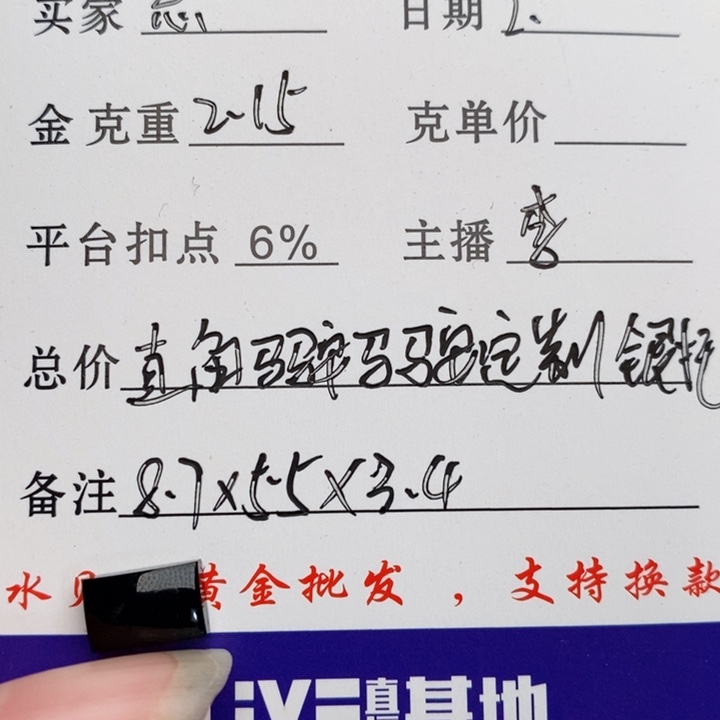 买家 日期
金克重 2.15 克单价
平台扣点 6% 主播 李
总价 直角马鞍马鞍定制银托
备注 8.7x5.5x3.4
水贝黄金批发，支持换款
直播基地